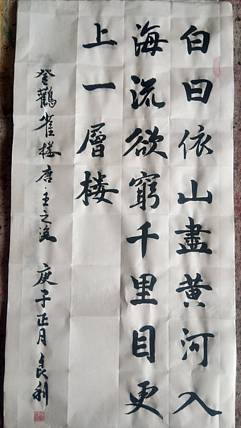 白日依山盡黄河入
海流欲窮千里目更
上一層楼
登鸛雀楼唐·王之涣 庚子正月良利